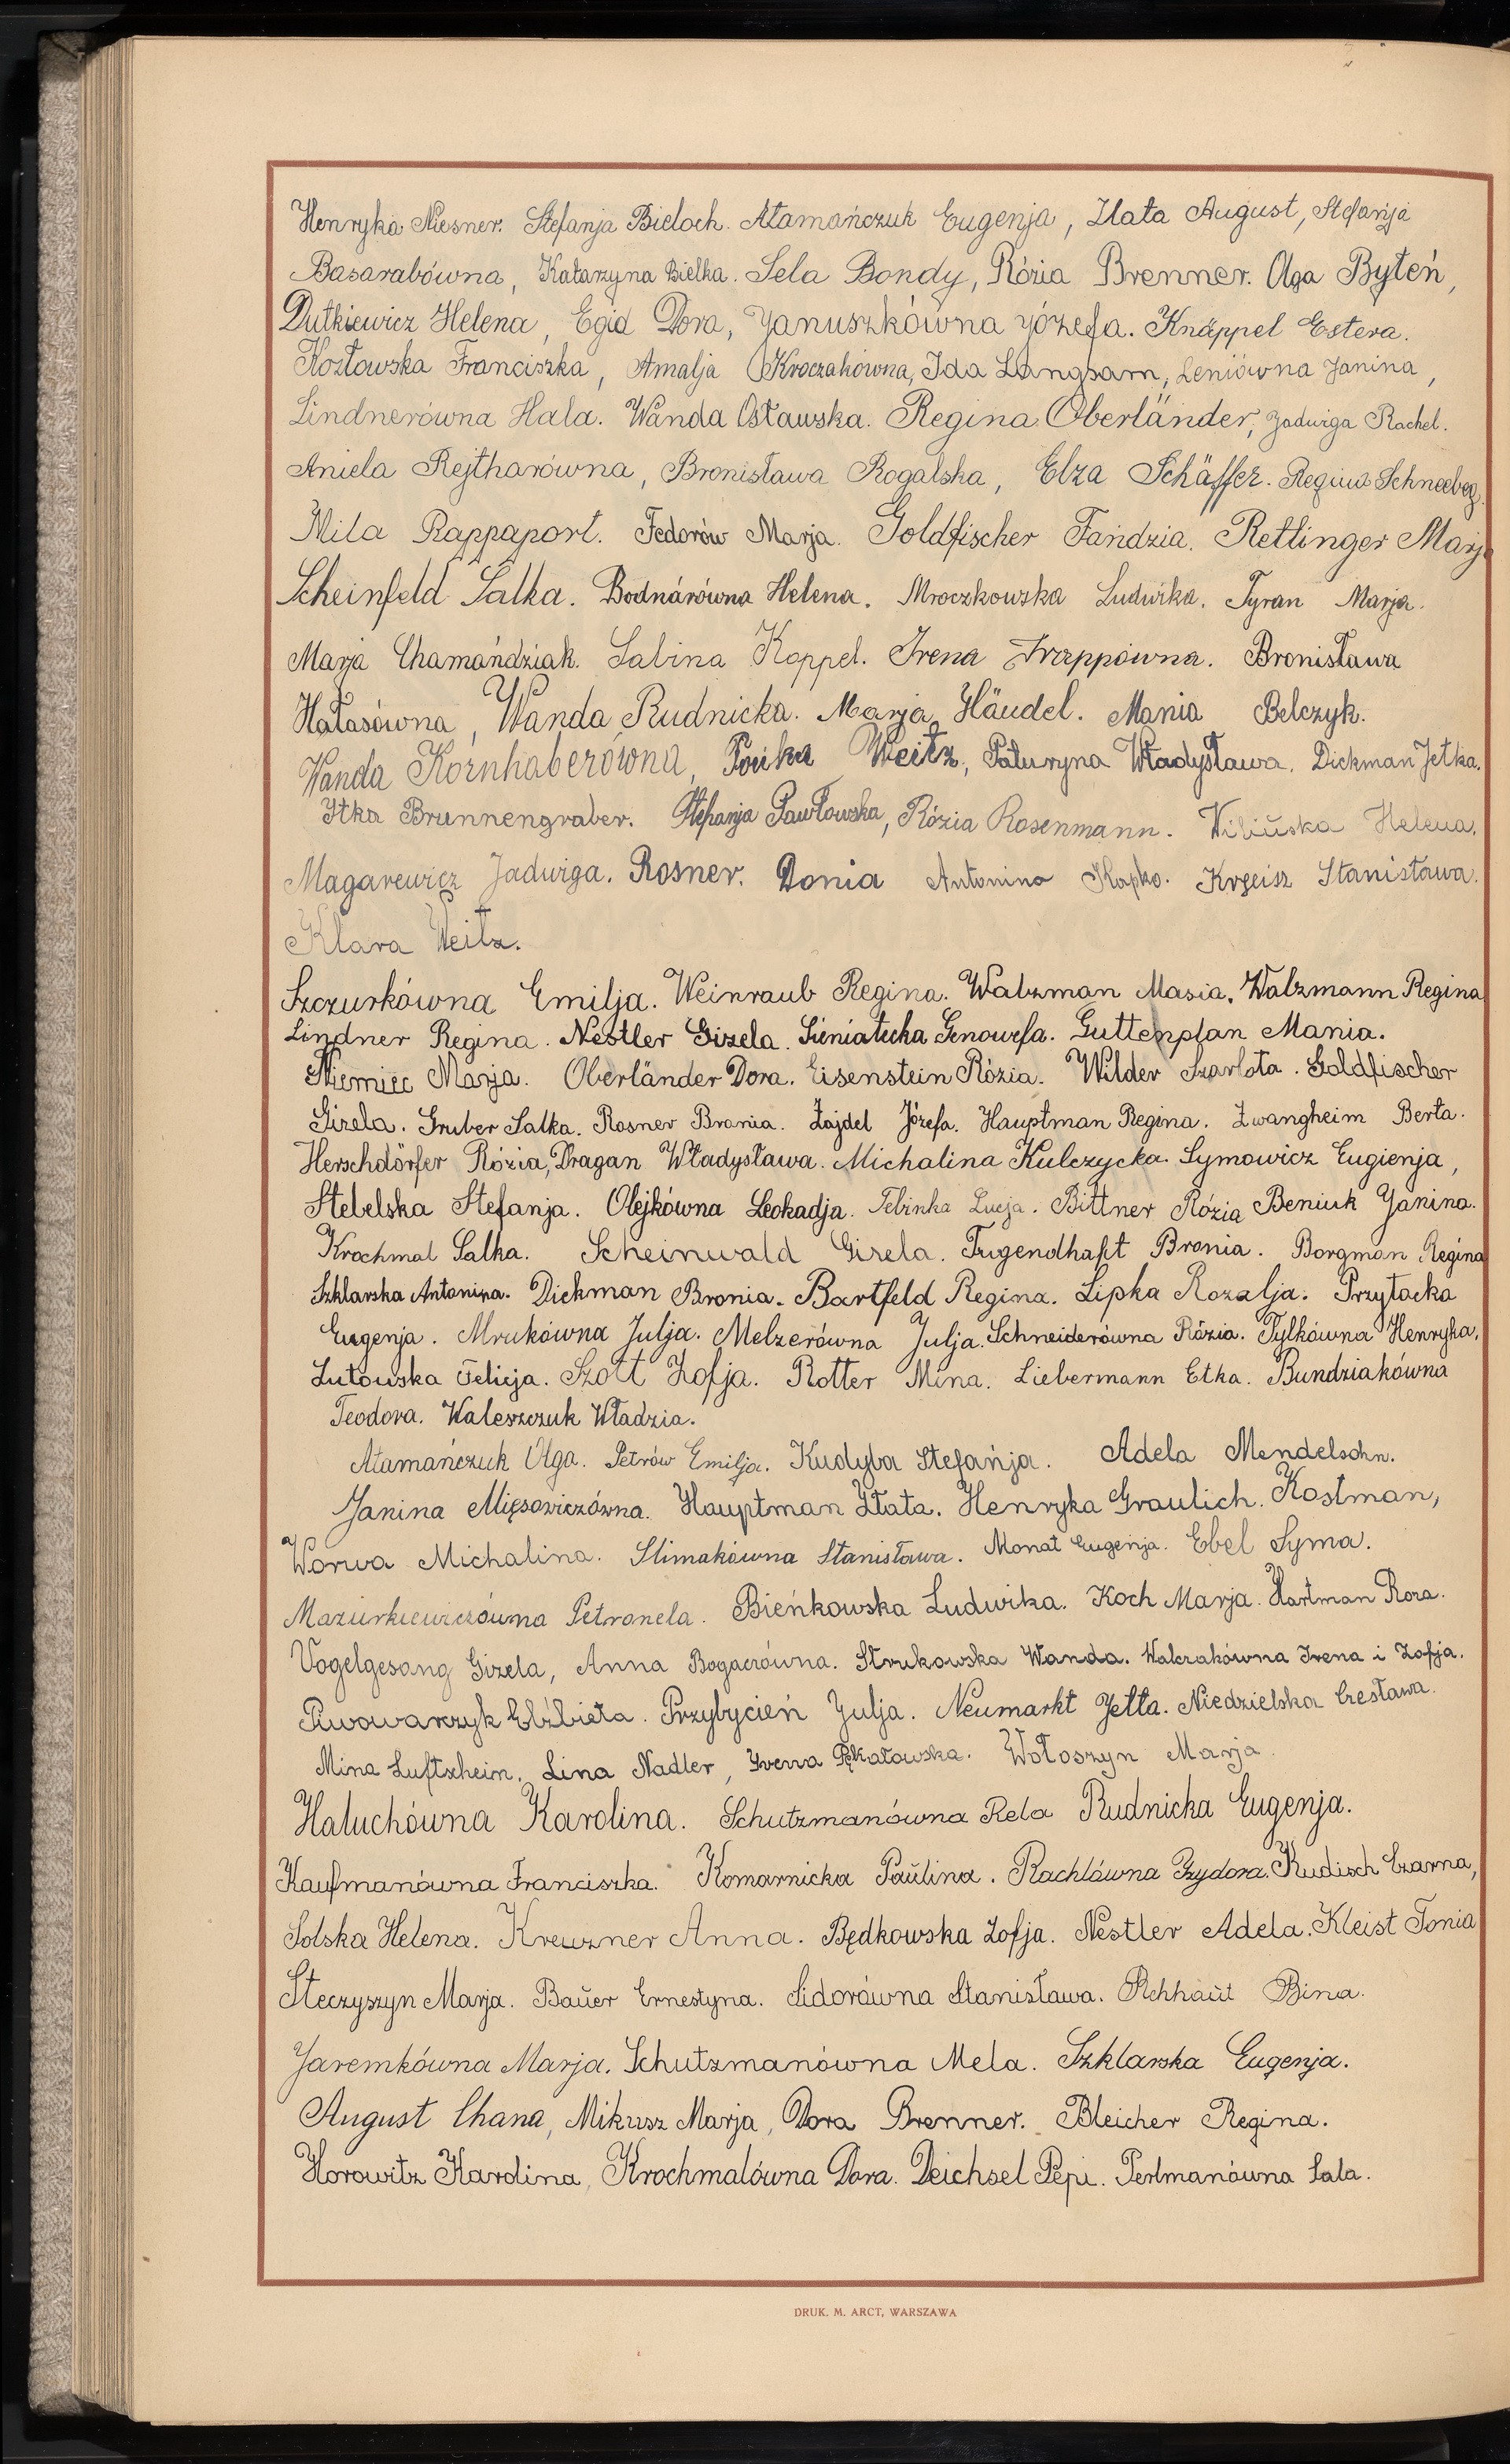 Henryka Niesner. Stefanja Bieloch. Atamańczuk Eugenja, Zlata August, Stefanja
Basarabówna, Katarzyna Bielka. Sela Bondy, Rózia Brenner. Olga Byteń,
Dutkiewicz Helena, Egid Dora, Januszkówna Józefa. Knäppel Estera.
Kozłowska Franciszka, Amalja Kroczakówna, Ida Langsam, Leniówna Janina,
Lindnerówna Hala. Wanda Osławska. Regina Oberländer, Jadwiga Rachel.
Aniela Rejtharówna, Bronisława Rogalska, Elza Schäffer. Regina Schneeberg.
Mila Rappaport. Fedorów Marja. Goldfischer Fańdzia. Retlinger Marja
Scheinfeld Salka. Bodnárówna Helena. Mroczkowska Ludwika. Tyran Marja.
Marja Chamańdziak. Sabina Koppel. Irena Trappówna. Bronisława
Hałasówna, Wanda Rudnicka. Marja Händel. Mania Belczyk.
Wanda Kornhaberówna, Weitz, Paturyna Władysława. Dickman Jetka.
Itka Brunnengraber. Stefanja Pawłowska, Rózia Rosenmann. Wilińska Helena.
Magarewicz Jadwiga. Rosner. Donia Antonina Kapko. Krzeisz Stanisława.
Klara Weitz.
Szczurkówna Emilja. Weinraub Regina. Walzman Masia. Walzmann Regina
Lindner Regina. Nestler Gizela. Sieniatecka Genowefa. Guttenplan Mania.
Niemiec Marja. Oberländer Dora. Eisenstein Rózia. Wilder Szarlota. Goldfischer
Gizela. Gruber Salka. Rosner Bronia. Zajdel Józefa. Hauptman Regina. Zwangheim Berta.
Herschdörfer Rózia, Dragan Władysława. Michalina Kulczycka. Symowicz Eugienja,
Stebelska Stefanja. Olejkówna Leokadja. Telinka Lucja. Bittner Rózia Beniuk Janina.
Krochmal Salka. Scheinwald Gizela. Tugendhaft Bronia. Borgman Regina
Szklarska Antonina. Dickman Bronia. Bartfeld Regina. Lipka Rozalja. Przytacka
Eugenja. Mrukówna Julja. Melzerówna Julja. Schneiderówna Rózia. Tylkówna Henryka.
Lutowska Felicja. Szott Zofja. Rotter Mina. Liebermann Etka. Bundziakówna
Teodora. Waleszczuk Władzia.
Atamańczuk Olga. Petrów Emilja. Kudyba Stefanja. Adela Mendelsohn.
Janina Mięsowiczówna. Hauptman Złata. Henryka Graulich. Kostman,
Worwa Michalina. Slimakówna Stanisława. Monat Eugenja. Ebel Syma.
Mazurkiewiczówna Petronela. Bieńkowska Ludwika. Koch Marja. Hartman Roza.
Vogelgesang Gizela, Anna Bogaczówna. Strukowska Wanda. Walczakówna Irena i Zofja.
Piwowarczyk Elżbieta. Przybycień Julja. Neumarkt Jetta. Niedzielska Czesława.
Mina Luftschein. Lina Nadler, Irena Pękatowska. Wołoszyn Marja.
Haluchówna Karolina. Schutzmanówna Rela Rudnicka Eugenja.
Kaufmanówna Franciszka. Komarnicka Paŭlina. Rachlówna Izydora. Kudisch Czarna,
Solska Helena. Kreuzner Anna. Będkowska Zofja. Nestler Adela. Kleist Tonia
Steczyszyn Marja. Baŭer Ernestyna. Sidorówna Stanisława. Rehhaŭt Bina.
Jaremkówna Marja. Schutzmanówna Mela. Szklarska Eugenja.
August Chana, Mikusz Marja, Dora Brenner. Bleicher Regina.
Horowitz Karolina, Krochmalówna Dora. Deichsel Pepi. Perlmanówna Sala.
DRUK. M. ARCT, WARSZAWA